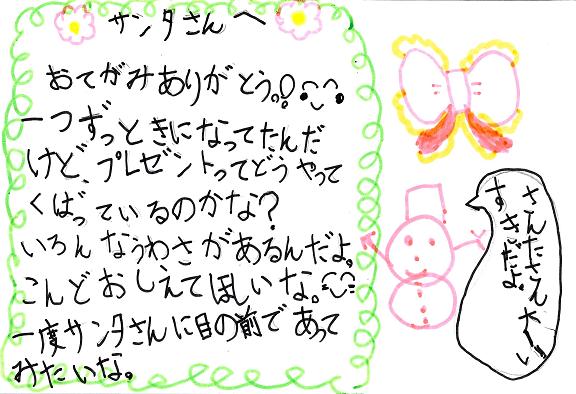 サンタさんへ
おてがみありがとう。!
一つずっときになってたんだ
けど、プレゼントってどうやって
くばっているのかな?
いろんなうわさがあるんだよ。
こんどおしえてほしいな。
一度サンタさんに目の前であって
みたいな。
さんたさん大い
すきだよ。